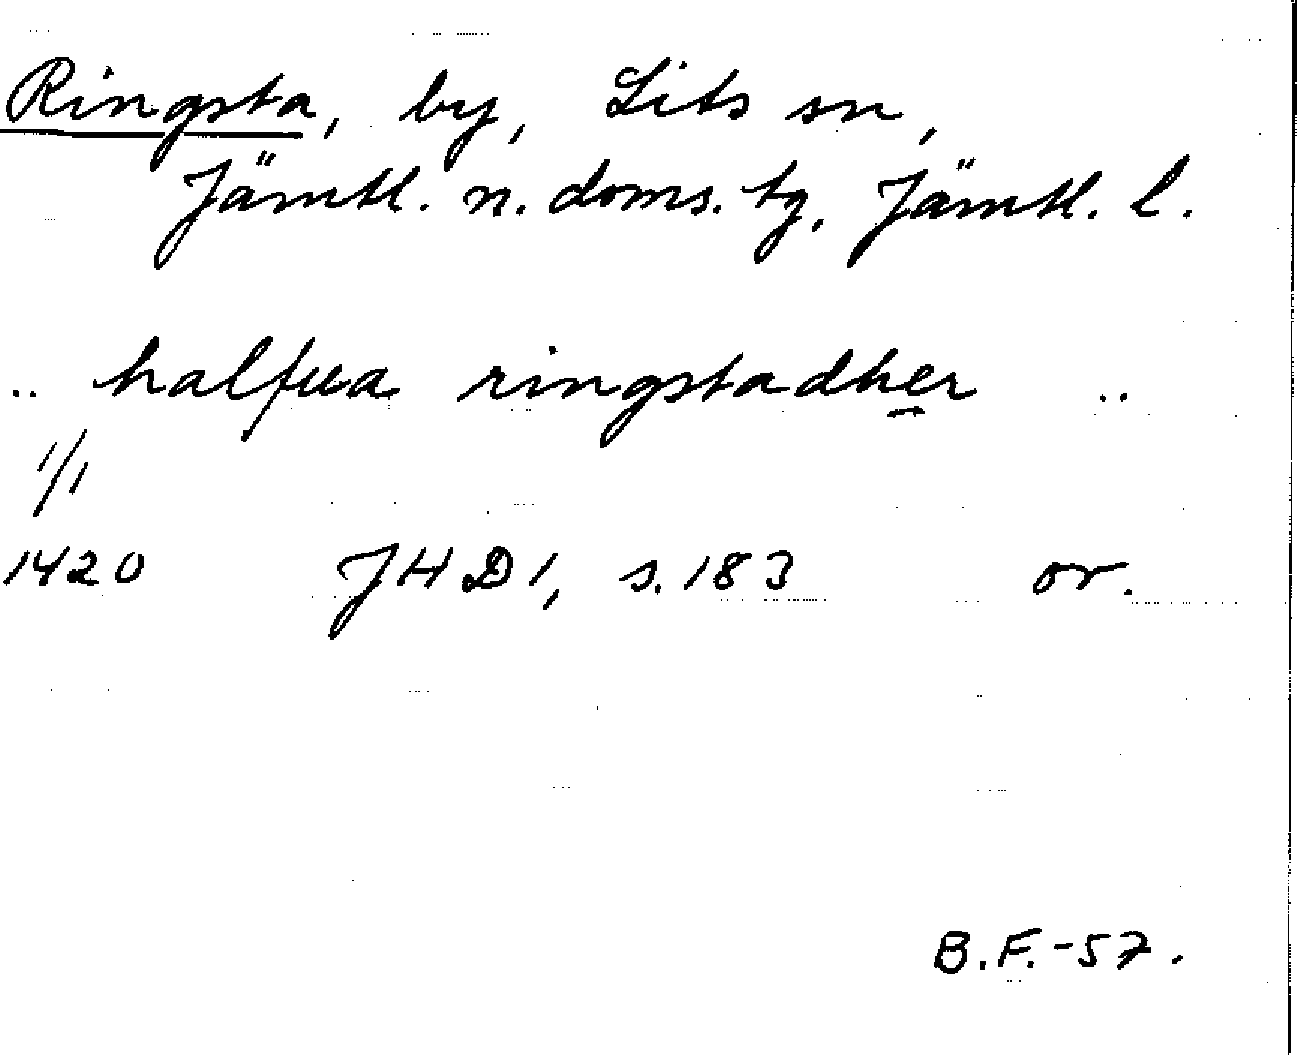 Ringsta, by, Lits sn,
Jämtl. n. doms. tg. Jämtl. l.
.. halfua ringstadher ..
1/1
1420 JHD 1, s. 183 or.
B.F.-57.